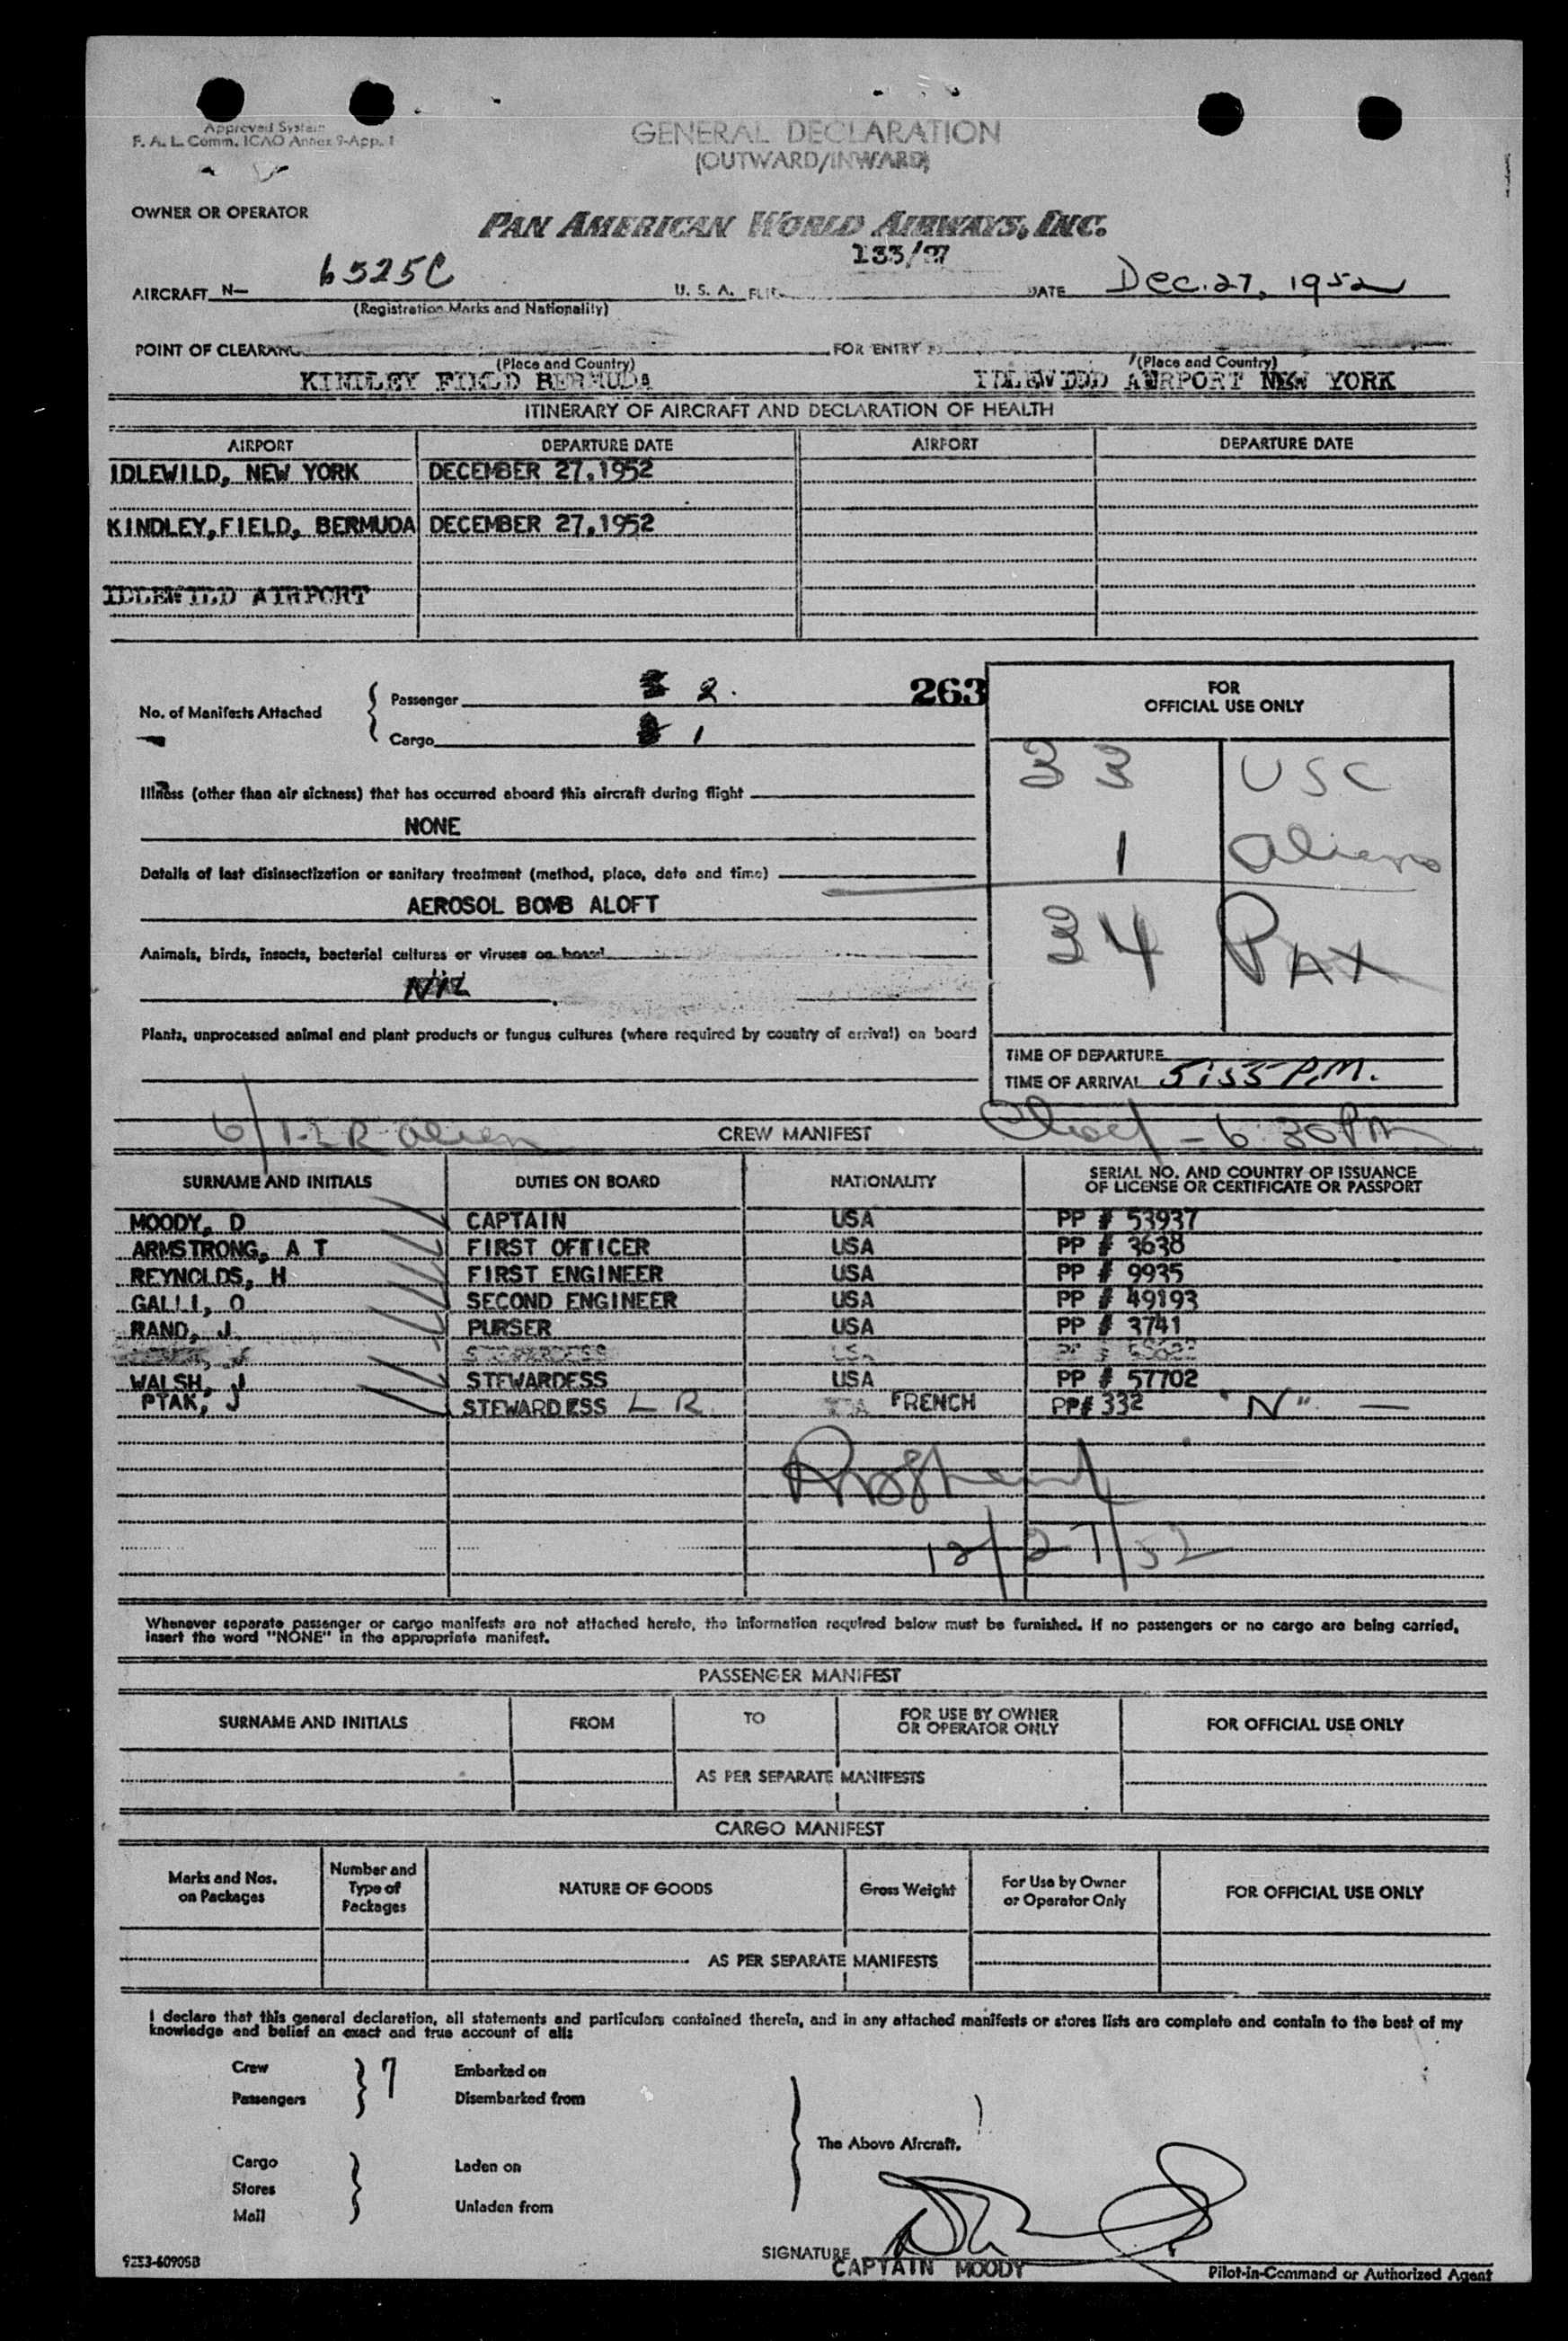 Approved System
F. A. L. Comm. ICAO Annex 9-App. 1
GENERAL DECLARATION
(OUTWARD/INWARD)
OWNER OR OPERATOR
PAN AMERICAN WORLD AIRWAYS, INC.
133/27
AIRCRAFT N— 6525C U. S. A. DATE Dec. 27, 1952
(Registration Marks and Nationality)
POINT OF CLEARANCE FOR ENTRY
(Place and Country) (Place and Country)
KINDLEY FIELD BERMUDA IDLEWILD AIRPORT NEW YORK
ITINERARY OF AIRCRAFT AND DECLARATION OF HEALTH
AIRPORT DEPARTURE DATE AIRPORT DEPARTURE DATE
IDLEWILD, NEW YORK DECEMBER 27,1952
KINDLEY,FIELD, BERMUDA DECEMBER 27,1952
IDLEWILD AIRPORT
No. of Manifests Attached
Passenger 2.
Cargo 1
263
FOR
OFFICIAL USE ONLY
33 USC
1 aliens
34 PAX
Illness (other than air sickness) that has occurred aboard this aircraft during flight
NONE
Details of last disinsectization or sanitary treatment (method, place, date and time)
AEROSOL BOMB ALOFT
Animals, birds, insects, bacterial cultures or viruses on board
NIL
Plants, unprocessed animal and plant products or fungus cultures (where required by country of arrival) on board
TIME OF DEPARTURE
TIME OF ARRIVAL 5:55 P.M.
6/1-LR alien CREW MANIFEST - 6:30 PM
SURNAME AND INITIALS DUTIES ON BOARD NATIONALITY SERIAL NO. AND COUNTRY OF ISSUANCE
OF LICENSE OR CERTIFICATE OR PASSPORT
MOODY, D CAPTAIN USA PP # 53937
ARMSTRONG, A T FIRST OFFICER USA PP # 3638
REYNOLDS, H FIRST ENGINEER USA PP # 9935
GALLI, O SECOND ENGINEER USA PP # 49193
RAND, J. PURSER USA PP # 3741
STEWARDESS USA PP #
WALSH, J STEWARDESS USA PP # 57702
PTAK, J STEWARDESS L R FRENCH PP# 332 "N" —
12/27/52
Whenever separate passenger or cargo manifests are not attached hereto, the information required below must be furnished. If no passengers or no cargo are being carried,
insert the word "NONE" in the appropriate manifest.
PASSENGER MANIFEST
SURNAME AND INITIALS FROM TO FOR USE BY OWNER
OR OPERATOR ONLY FOR OFFICIAL USE ONLY
AS PER SEPARATE MANIFESTS
CARGO MANIFEST
Marks and Nos.
on Packages Number and
Type of
Packages NATURE OF GOODS Gross Weight For Use by Owner
or Operator Only FOR OFFICIAL USE ONLY
AS PER SEPARATE MANIFESTS
I declare that this general declaration, all statements and particulars contained therein, and in any attached manifests or stores lists are complete and contain to the best of my
knowledge and belief an exact and true account of all:
Crew 7 Embarked on
Passengers Disembarked from
The Above Aircraft.
Cargo Laden on
Stores
Mail Unladen from
SIGNATURE
CAPTAIN MOODY
Pilot-in-Command or Authorized Agent
9253-60905B